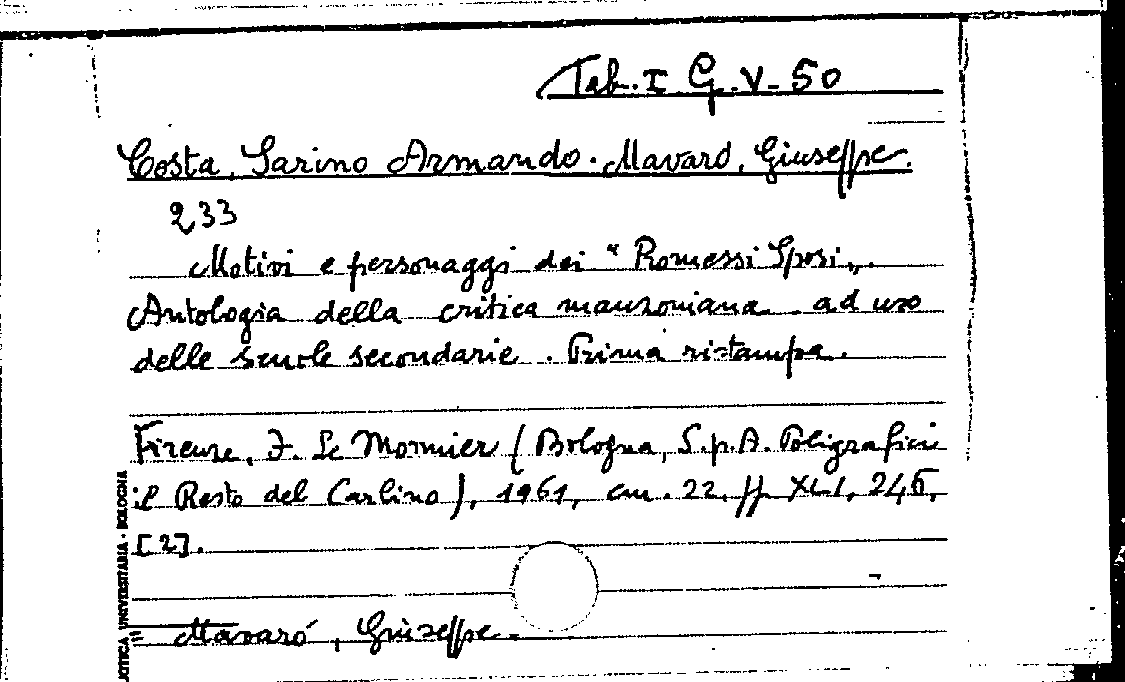 Tab. I G. V. 50
Costa, Sarino Armando. Mavaro, Giuseppe.
233
Motivi e personaggi dei "Promessi Sposi„.
Antologia della critica manzoniana ad uso
delle scuole secondarie. Prima ristampa.
Firenze, F. Le Monnier (Bologna, S.p.A. Poligrafici
il Resto del Carlino), 1961, cm. 22, pp. XLI, 246,
[2].
= Mavaró, Giuseppe.
IOTICA UNIVERSITARIA - BOLOGNA